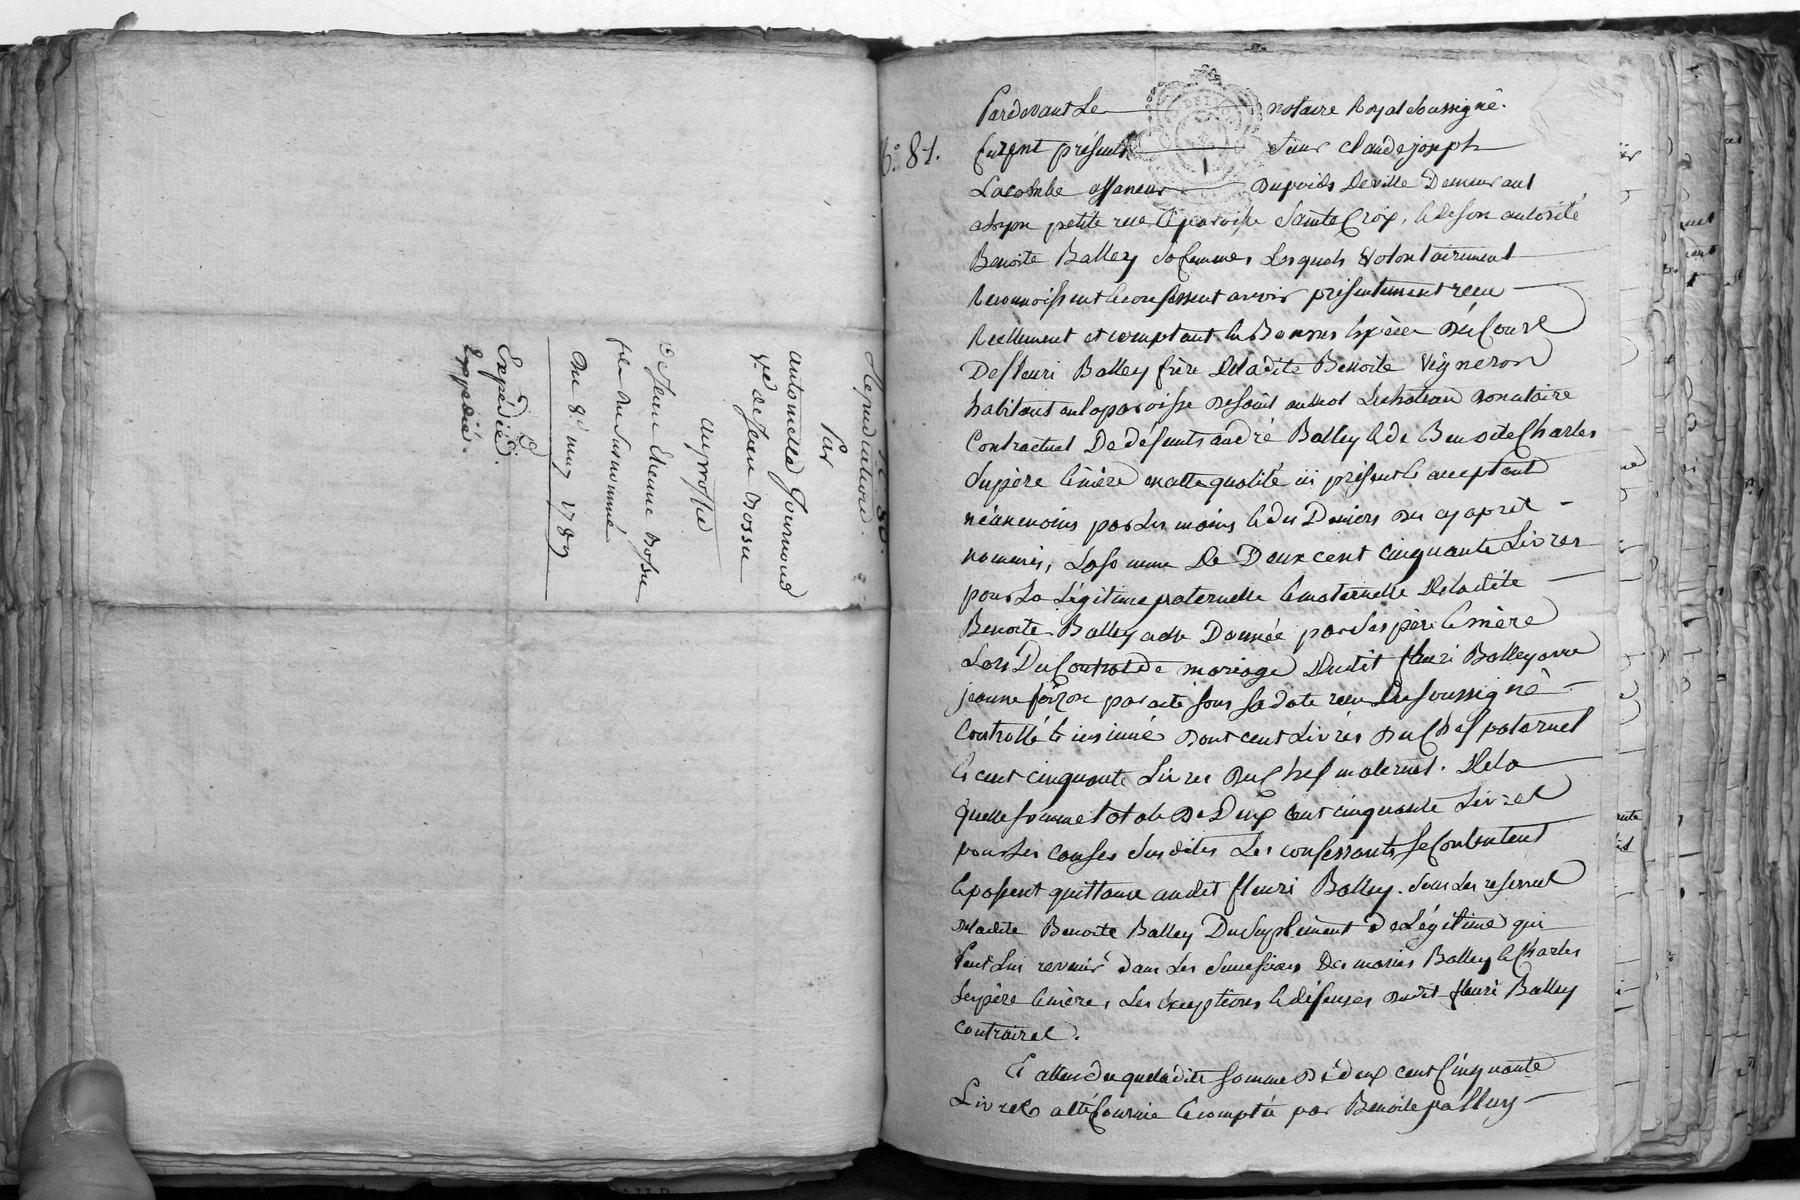 N.° 80.
Répudiation.
Par
antoinette
V.e de Jean Bossu
au profit
De Jean Etienne Bossu
fils du surnommé
Du 8.e may 1789
Expédiée.
Expédiée.
N.° 81.
Pardevant Le notaire Royal soussigné.
furent présents sieur Claude joseph
Lacombe du poids de ville Demeurant
a Lyon petite rue & paroisse Sainte Croix, & de son autorité
Benoite Balley sa femme, Lesquels Volontairement
Reconnoissent & confessent avoir présentement reçu
Reellement et comptant en Bonnes Espèces De Cours
De fleuri Balley frère de ladite Benoite Vigneron
habitant en la paroisse de donataire
Contractuel De défunts andré Balley & de Benoite Charles
Ses père & mère en cette qualité ici présent & acceptant
néanmoins par les mains & des Deniers du cy après
nommé, La somme De Deux cent cinquante Livres
pour La Légitime paternelle & maternelle De ladite
Benoite Balley a elle Donnée par ses père & mère
Lors Du Contrat de mariage Dudit fleuri Balley avec
jeanne par acte sous sa date reçu du soussigné
Controllé & insinué Dont cent Livres Du Chef paternel
& cent cinquante Livres Du Chef maternel. De la
quelle somme totale De Deux cent cinquante Livres
pour Les causes susdites Les confessants se Contentent
& passent quittance audit fleuri Balley. sous les reserves
de ladite Benoite Balley Du suplement de Légitime qui
Peut Lui revenir dans Les successions Des mariés Balley & Charles
ses père & mère, Les exceptions & défenses dudit fleuri Balley
contraires.
Et attendu que ladite somme De deux cent Cinquante
Livres a été fournie & comptée par Benoite